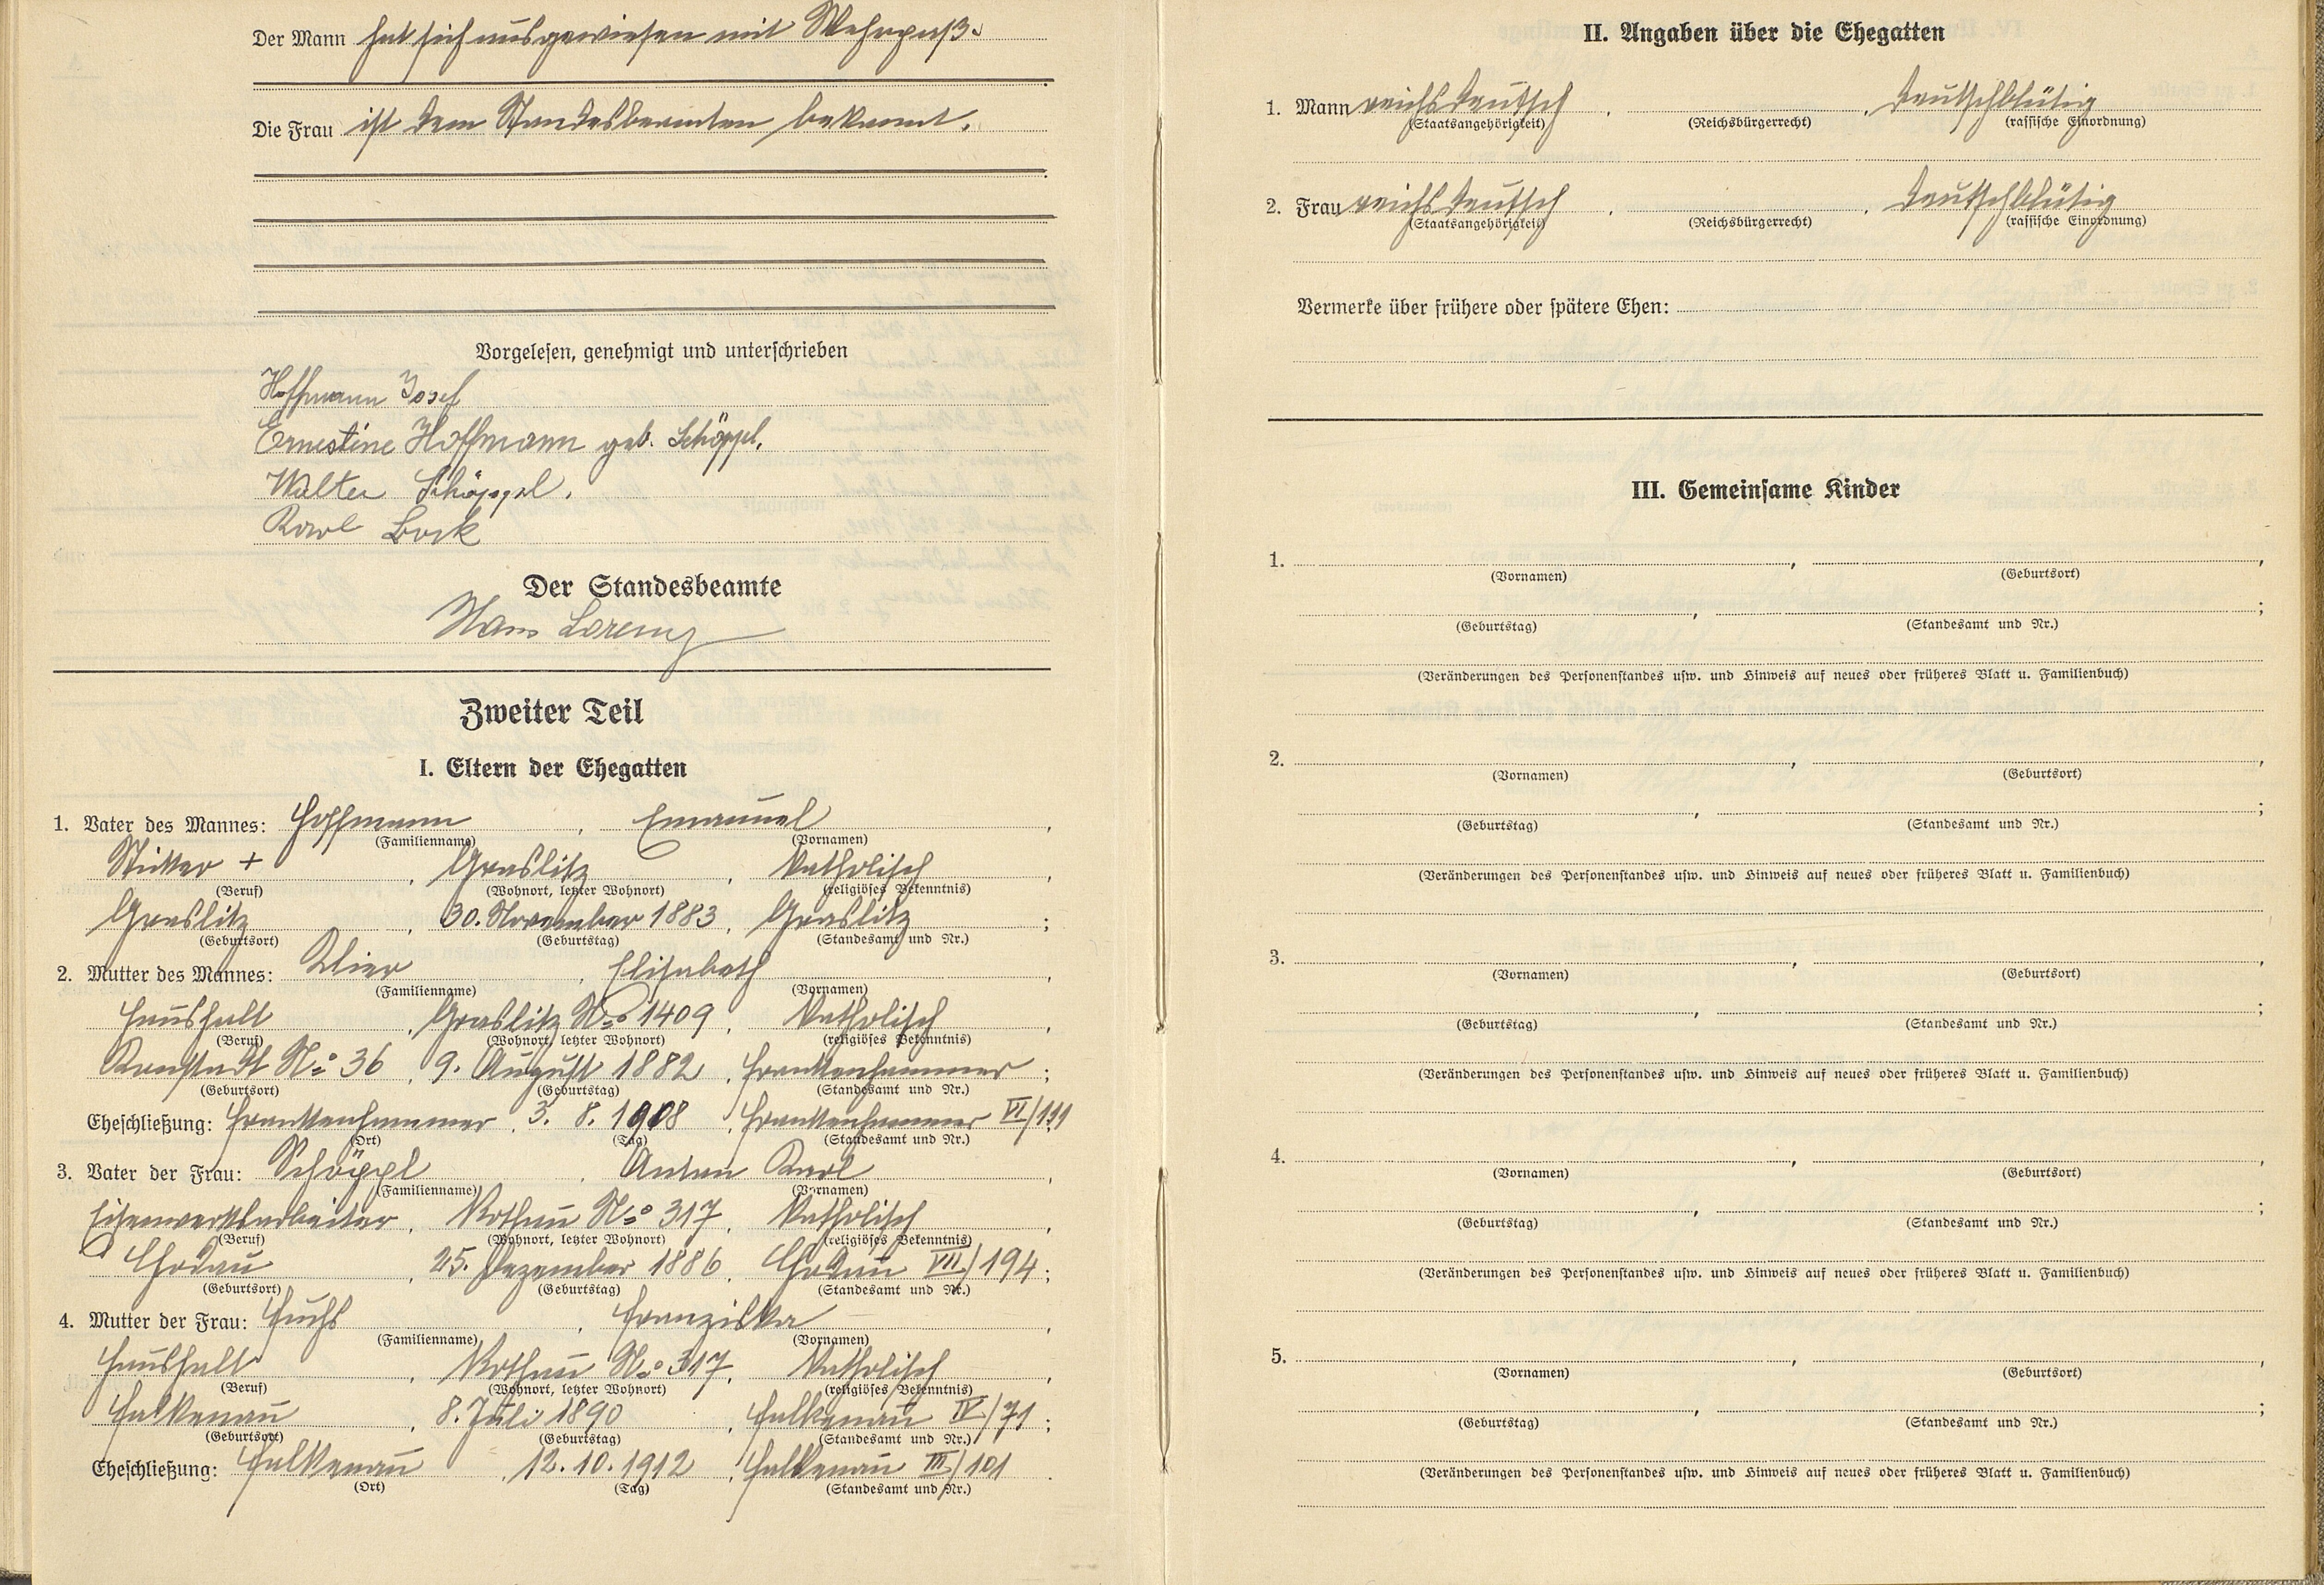 Der Mann hat sich ausgewiesen mit Wehrpaß.
Die Frau ist dem Standesbeamten bekannt.
Vorgelesen, genehmigt und unterschrieben
Hoffmann Josef
Ernestine Hoffmann geb. Schöppl.
Walter Schöppel.
Karl Bock
Der Standesbeamte
Hans Lorenz
Zweiter Teil
I. Eltern der Ehegatten
1. Vater des Mannes: Hoffmann, Emanuel,
(Familienname) (Vornamen)
Sticker +, Graslitz, katholisch,
(Beruf) (Wohnort, letzter Wohnort) (religiöses Bekenntnis)
Graslitz, 30. November 1883, Graslitz;
(Geburtsort) (Geburtstag) (Standesamt und Nr.)
2. Mutter des Mannes: Klier, Elisabeth,
(Familienname) (Vornamen)
Haushalt, Graslitz No 1409, katholisch,
(Beruf) (Wohnort, letzter Wohnort) (religiöses Bekenntnis)
No 36, 9. August 1882, Frankenhammer;
(Geburtsort) (Geburtstag) (Standesamt und Nr.)
Eheschließung: Frankenhammer, 3. 8. 1908, Frankenhammer VI/111
(Ort) (Tag) (Standesamt und Nr.)
3. Vater der Frau: Schöppl, Anton Karl,
(Familienname) (Vornamen)
Eisenwerksarbeiter, Rothau No 317, katholisch,
(Beruf) (Wohnort, letzter Wohnort) (religiöses Bekenntnis)
Chodau, 25. Dezember 1886, Chodau VII/194;
(Geburtsort) (Geburtstag) (Standesamt und Nr.)
4. Mutter der Frau: Fuchs, Franziska,
(Familienname) (Vornamen)
Haushalt, Rothau No 317, katholisch,
(Beruf) (Wohnort, letzter Wohnort) (religiöses Bekenntnis)
Falkenau, 8. Juli 1890, Falkenau IV/71;
(Geburtsort) (Geburtstag) (Standesamt und Nr.)
Eheschließung: Falkenau, 12. 10. 1912, Falkenau III/101
(Ort) (Tag) (Standesamt und Nr.)
II. Angaben über die Ehegatten
1. Mann reichsdeutsch, , deutschblütig
(Staatsangehörigkeit) (Reichsbürgerrecht) (rassische Einordnung)
2. Frau reichsdeutsch, , deutschblütig
(Staatsangehörigkeit) (Reichsbürgerrecht) (rassische Einordnung)
Vermerke über frühere oder spätere Ehen:
III. Gemeinsame Kinder
1. , ,
(Vornamen) (Geburtsort)
, ;
(Geburtstag) (Standesamt und Nr.)
(Veränderungen des Personenstandes usw. und Hinweis auf neues oder früheres Blatt u. Familienbuch)
2. , ,
(Vornamen) (Geburtsort)
, ;
(Geburtstag) (Standesamt und Nr.)
(Veränderungen des Personenstandes usw. und Hinweis auf neues oder früheres Blatt u. Familienbuch)
3. , ,
(Vornamen) (Geburtsort)
, ;
(Geburtstag) (Standesamt und Nr.)
(Veränderungen des Personenstandes usw. und Hinweis auf neues oder früheres Blatt u. Familienbuch)
4. , ,
(Vornamen) (Geburtsort)
, ;
(Geburtstag) (Standesamt und Nr.)
(Veränderungen des Personenstandes usw. und Hinweis auf neues oder früheres Blatt u. Familienbuch)
5. , ,
(Vornamen) (Geburtsort)
, ;
(Geburtstag) (Standesamt und Nr.)
(Veränderungen des Personenstandes usw. und Hinweis auf neues oder früheres Blatt u. Familienbuch)